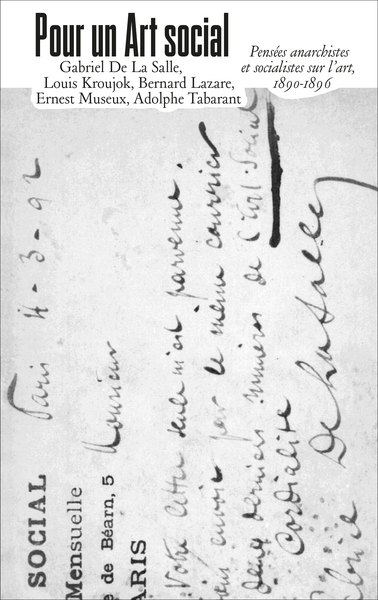 Pour un Art social
Gabriel De La Salle,
Louis Kroujok, Bernard Lazare,
Ernest Museux, Adolphe Tabarant
Pensées anarchistes
et socialistes sur l'art,
1890-1896
SOCIAL
Mensuelle
e de Béarn, 5
ARIS
Paris 4-3-92
Monsieur
Votre lettre seule m'est parvenue.
envoie par le même courrier
deux derniers numéros de l'Art Social
Cordialité
De la Salle